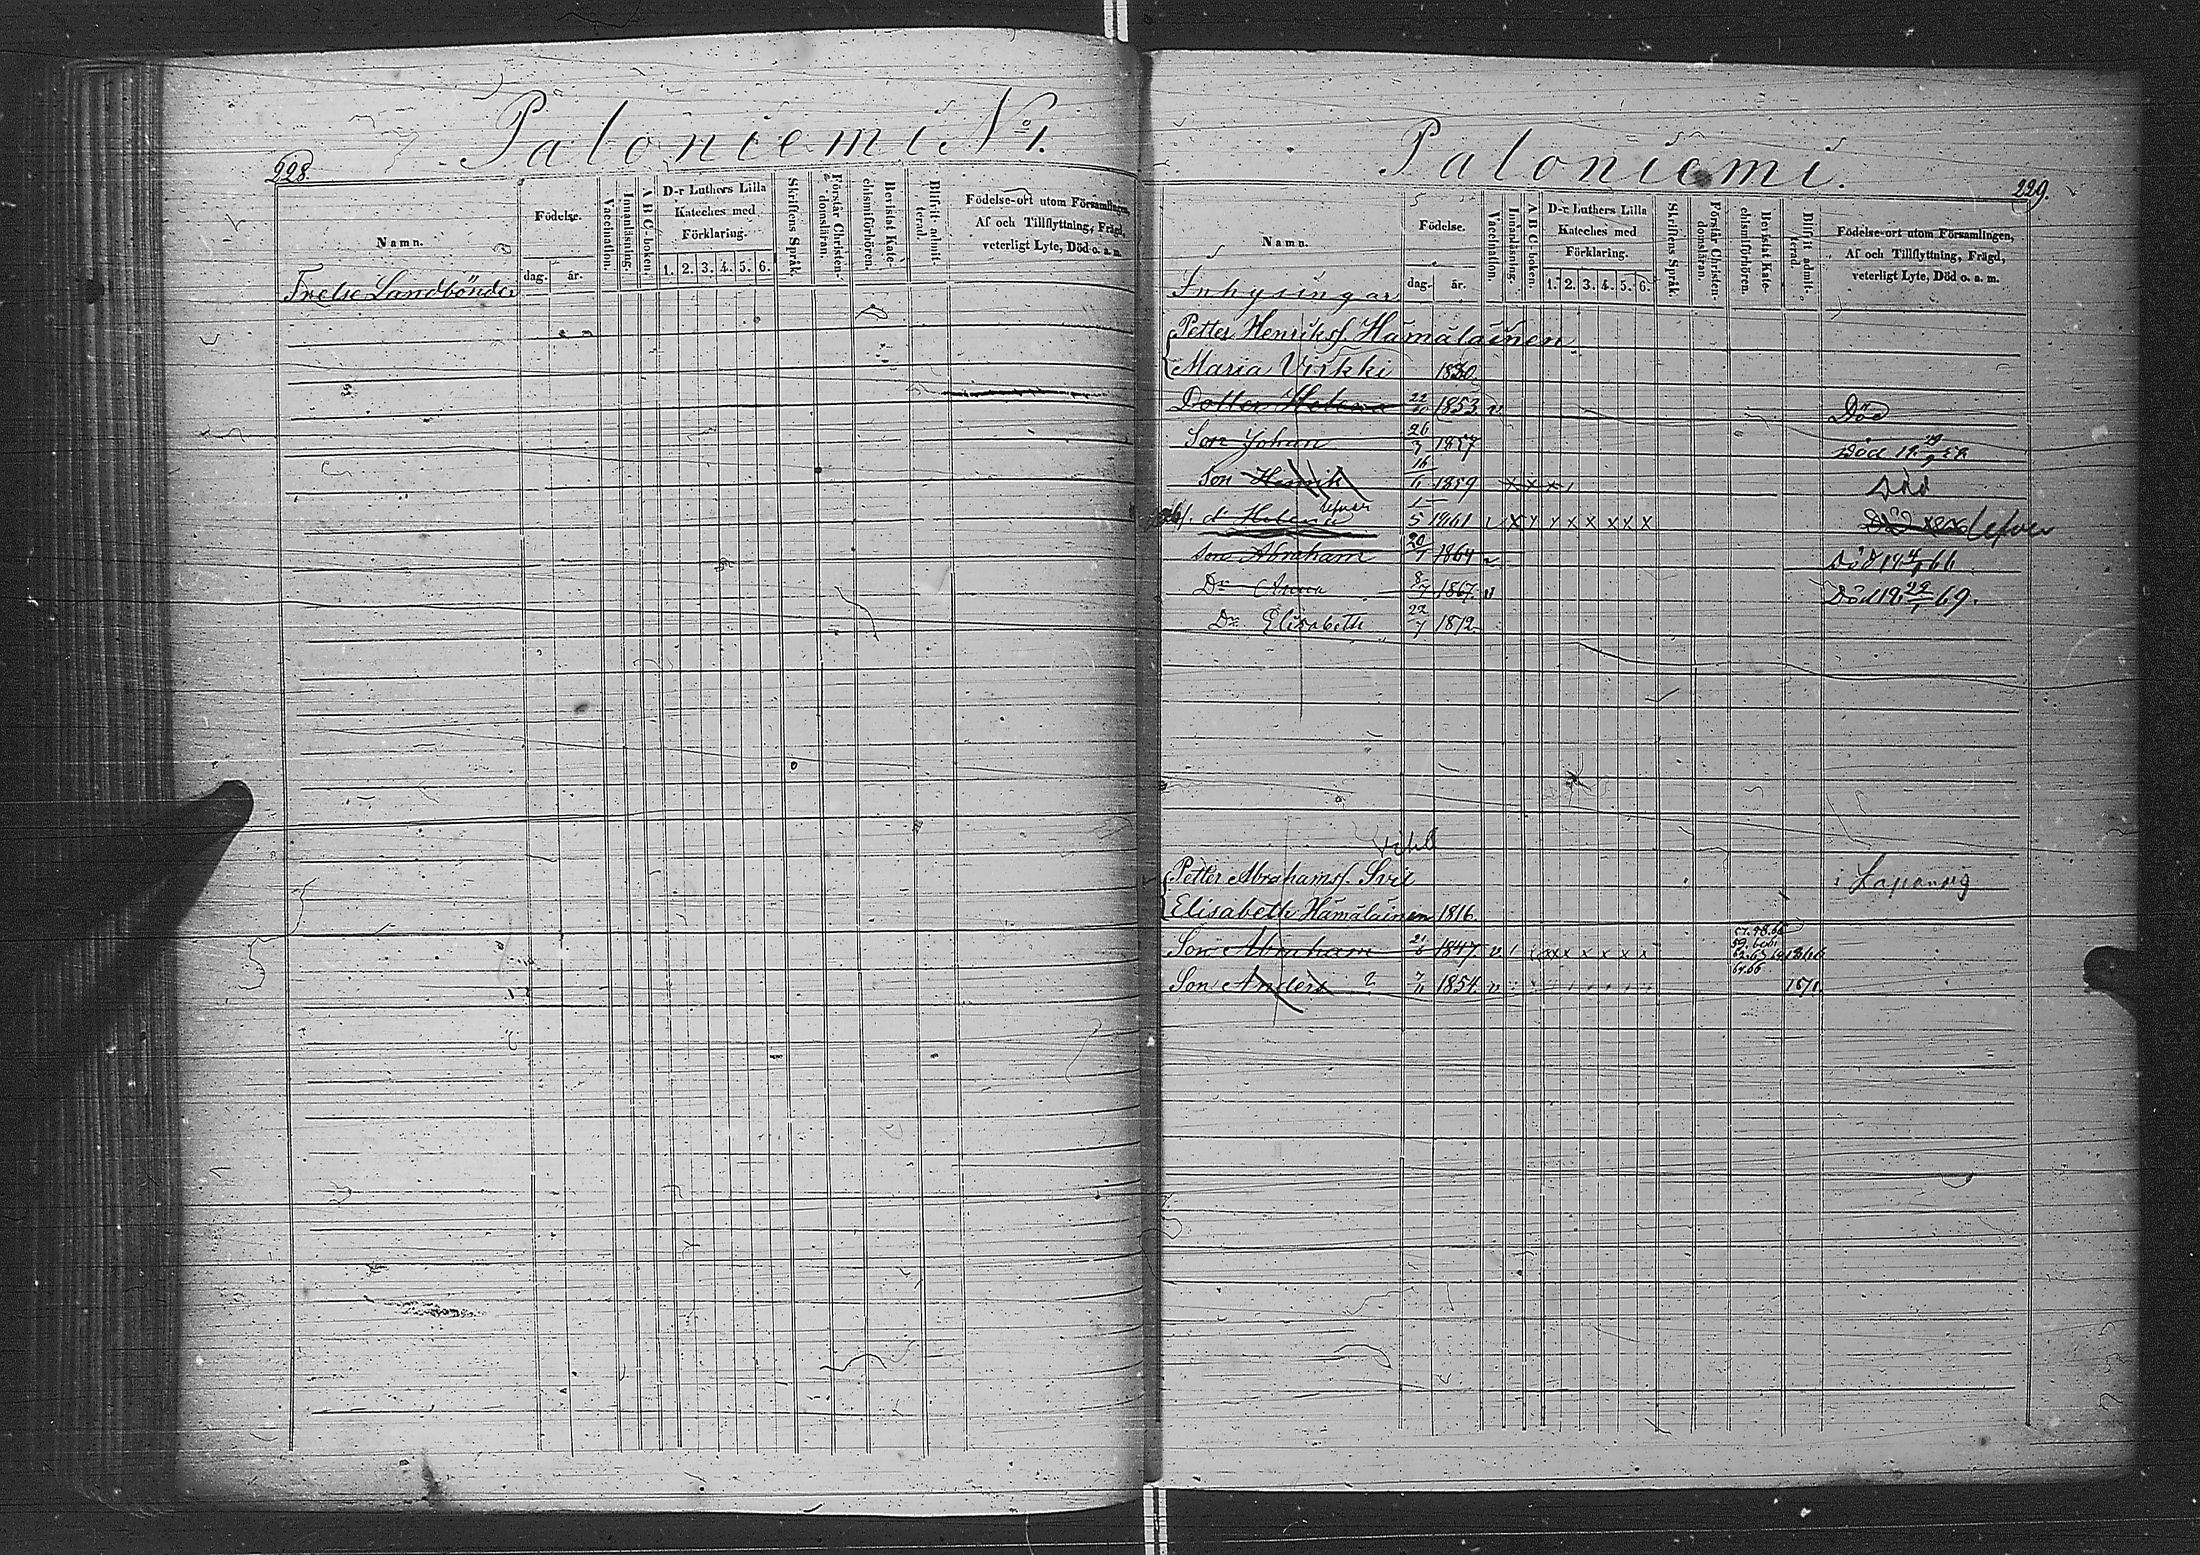 Paloniemi No 1.
228.
Namn.
Födelse.
dag. år.
Vaccination.
Innanläsning.
A B C-boken.
D-r Luthers Lilla
Kateches med
Förklaring.
1. 2. 3. 4. 5. 6.
Skriftens Språk.
Förstår Christen-
domsläran.
Bevistat Kate-
chismiförhören.
Blifvit admit-
terad.
Födelse-ort utom Församlingen,
Af och Tillflyttning, Frägd,
veterligt Lyte, Död o. a. m.
Frelse Landbönder
Paloniemi.
229.
Namn.
Födelse.
dag. år.
Vaccination.
Innanläsning.
A B C-boken.
D-r Luthers Lilla
Kateches med
Förklaring.
1. 2. 3. 4. 5. 6.
Skriftens Språk.
Förstår Christen-
domsläran.
Bevistat Kate-
chismiförhören.
Blifvit admit-
terad.
Födelse-ort utom Församlingen,
Af och Tillflyttning, Frägd,
veterligt Lyte, Död o. a. m.
Inhysingar
Petter Henriksf. Hämäläinen
Maria Virkki 1830
Dotter Helena 1853 v Död
Son Johan 26/3 1857 Död
Son Henrik 16/6 1859 x x x Död
d Helena lefver 1861 x x x x x x lefver
Son Abraham 20/1 1864 v Död 66
Dr Anna 8/7 1867 v Död 69.
Dr Elisabeth 22/7 1872
Petter Abrahamsf. i
Elisabeth Hämäläinen 1816
Son Abraham 21/6 1847. v x x x x x x
Son Anders 7/11 1854 v 1871